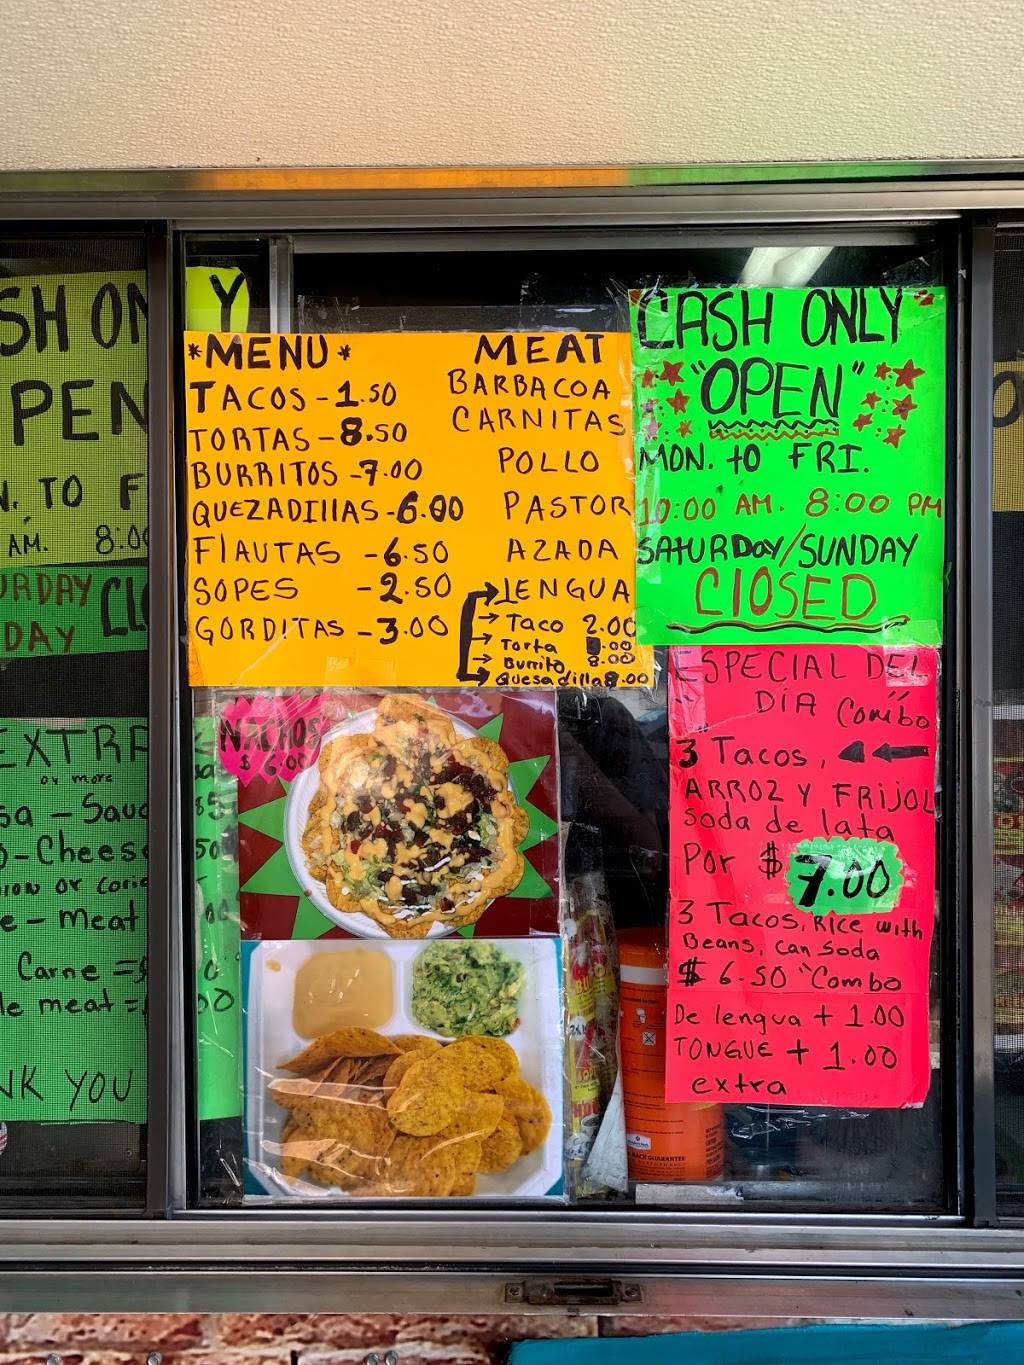 *MENU*
TACOS - 1.50
TORTAS - 8.50
BURRITOS - 7.00
QUEZADIllAS - 6.00
FlAUTAS - 6.50
SOPES - 2.50
GORDITAS - 3.00
MEAT
BARBACOA
CARNITAS
POLLO
PASTOR
AZADA
LENGUA
Taco 2.00
Torta .00
Burrito 8.00
Quesadilla 8.00
CASH ONLY
"OPEN"
MON. to FRI.
10:00 AM. 8:00 PM
SATURDAY/SUNDAY
ClOSED
ESPECIAL DEL
DIA "Combo"
3 Tacos,
ARROZ Y FRIJOL
Soda de lata
Por $ 7.00
3 Tacos, Rice with
Beans, can Soda
$ 6.50 "Combo
De lengua + 1.00
TONGUE + 1.00
extra
NACHOS
$ 6.00
Y
SH ON
PEN
. TO F
AM. 8:00
URDAY CL
DAY
EXTRA
or more
sa - Sauc
o - Cheese
e - meat
Carne = $
le meat =
NK YOU
BACK GUARANTEE